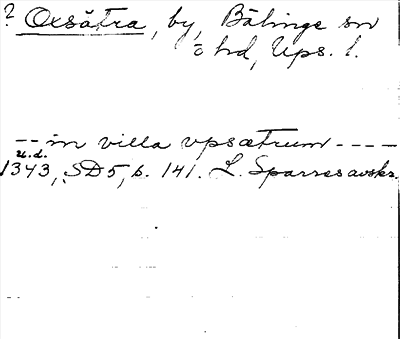 ? Oxsätra, by, Bälinge sn
o hd, Ups. l.
-- in villa vpsætrum ----
u.d.
1343, SD 5, s. 141. L. Sparres avskr.